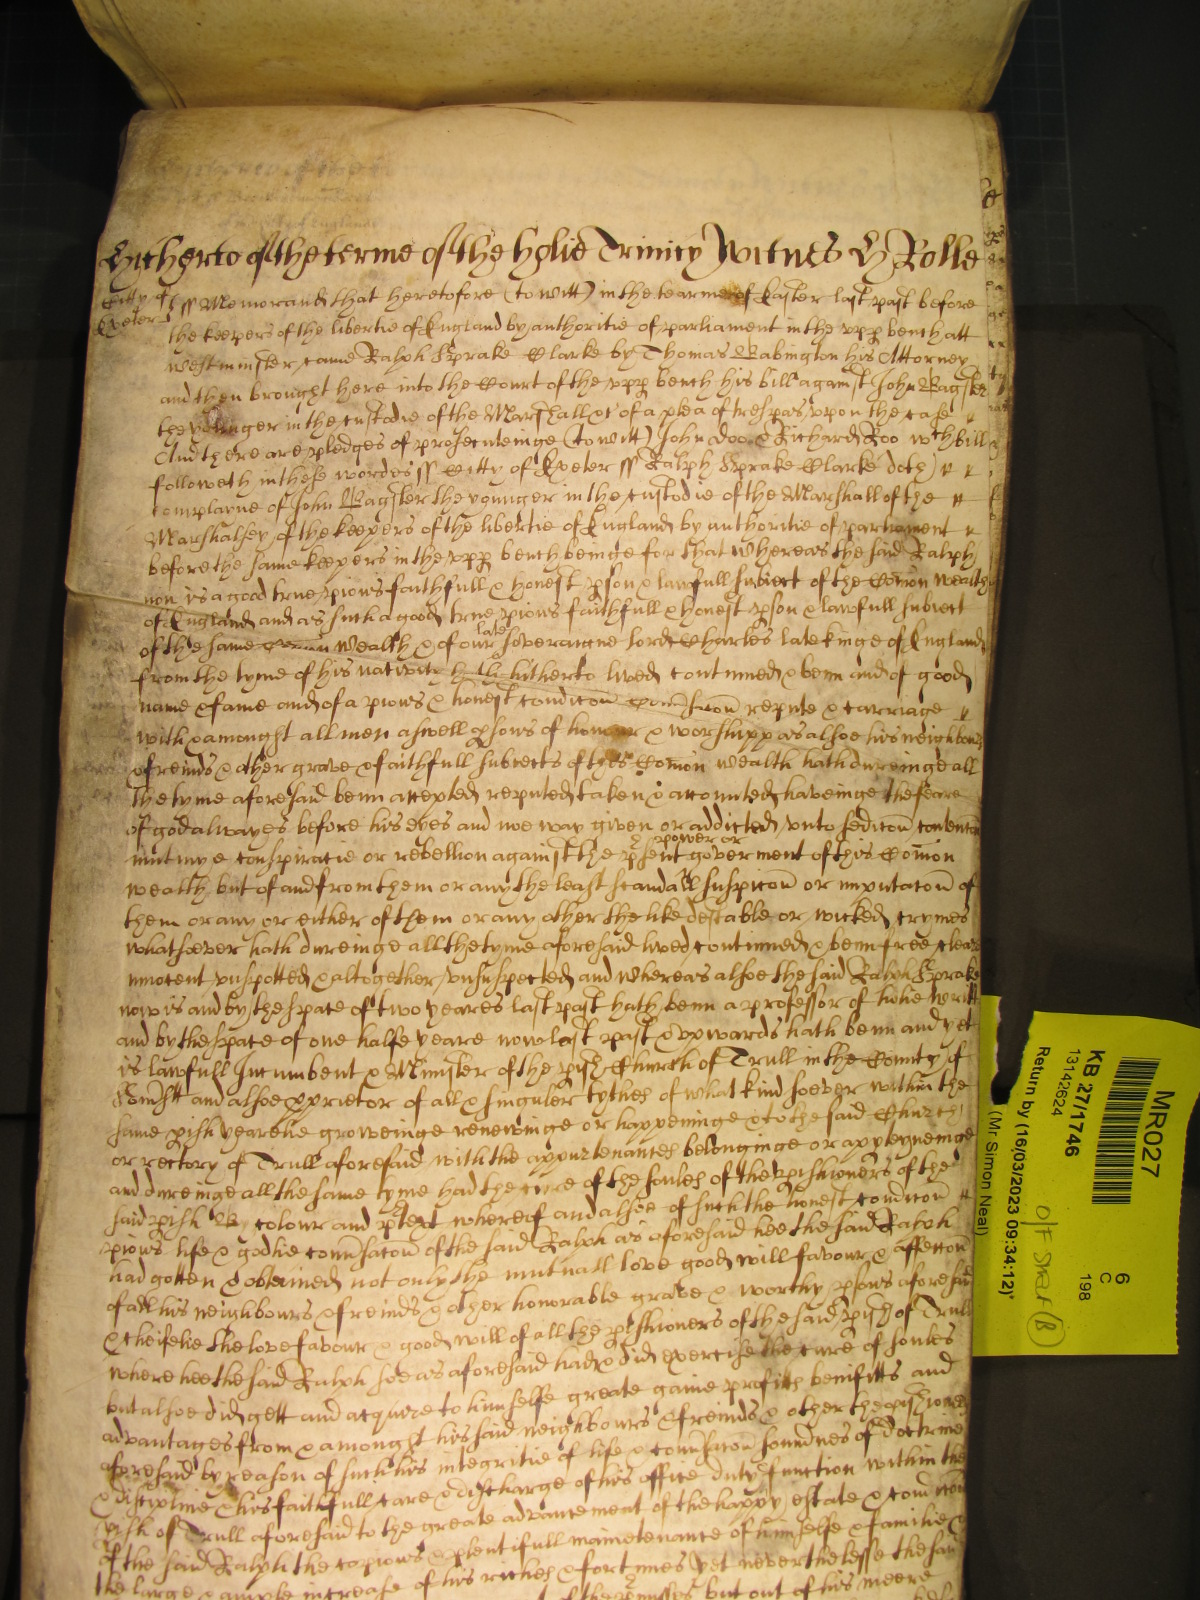 Hitherto of the terme of the holie Trinity Witnes H Rolle
Citty of
Exeter
ss Memorand that heretofore (to witt) in the tearme of Easter last past before
the keepers of the libertie of England by authoritie of parliament in the upp bench att
Westminster came Ralph Sprake Clarke by Thomas Babington his Attorney
and then brought here into the Court of the upp bench his bill against John Bagster
the younger in the custodie of the Marshall &c of a plea of trespas upon the case
And there are pledges of prosecuteinge (to witt) John Doo & Richard Roo wch bill
followeth in these wordes ss Citty of Exeter ss Ralph Sprake Clarke doth
complayne of John Bagster the younger in the custodie of the Marshall of the
Marshalsey of the keepers of the libertie of England by authoritie of parliament
before the same keepers in the upp bench beinge for that whereas the said Ralph
now is a good true pious faithfull & honest pson & lawfull subiect of the Comon wealth
of England and as such a good true pious faithfull & honest pson & lawfull subiect
of the same Comon Wealth & of our late soveraigne lord Charles late kinge of England
from the tyme of his nativity hitherto lived continued & benn and of good
name & fame and of a pious & honest condicon repute & carriage
with & amongst all men aswell psons of honour & worshipp as alsoe his neighbours
& freinds & other grave & faithfull subiects of this Comon wealth hath dureinge all
the tyme aforesaid benn accepted reputed taken & accounted haveinge the feare
of god alwayes before his eyes and noe way given or addicted unto sedicon contencon
mutinye conspiracie or rebellion against the psent power or goverment of this Comon
wealth but of and from them or any the least scandall suspicon or imputacon of
them or any or either of them or any other the like detstable or wicked crymes
whatsoever hath dureinge all the tyme aforesaid lived continued & benn free cleare
innocent unspotted & altogether unsuspected and whereas alsoe the said Ralph Sprake
now is and by the space of two yeares last past hath benn a professor of holie writt
and by the space of one halfe yeare now last past & upwards hath benn and yet
is lawfull Incumbent & Minister of the pish Church of Trull in the County of
Somsett and alsoe pprietor of all & singuler tythes of what kind soever within the
same pish yearelie groweinge renewinge or happeninge & to the said Church
or rectory of Trull aforesaid with the appurtenances belonginge or apperteyneinge
and dureinge all the same tyme had the cure of the soules of the pishioners of the
said pish By colour and ptext whereof and alsoe of such the honest condicon
pious life & godlie convsacon of the said Ralph as aforesaid hee the said Ralph
had gotten & obteined not only the mutuall love good will favour & affeccon
of all his neighbours & freinds & other honorable grave & worthy psons aforesaid
& cheifelie the love favour & good will of all the pishioners of the said pish of Trull
where hee the said Ralph soe as aforesaid had & did exercise the cure of soules
but alsoe did gett and acquire to himselfe greate gaine profitts benifitts and
advantages from & amongst his said neighbours & freinds & other the pishioners
aforesaid by reason of such his integritie of life & convsacon soundnes of doctrine
& discipline & his faithfull care & discharge of his office duty & function within the
pish of Trull aforesaid to the greate advancement of the happy estate & condicon
of the said Ralph the copious & plentifull maintenance of himselfe & familie &
the large & ample increase of his riches & fortunes yet neverthelesse the said
of the pmisses but out of his meere
MR027
KB 27/1746
13142624
Return by (16/03/2023 09:34:12)
(Mr Simon Neal)
6
C
198
O/F SHELF (B)